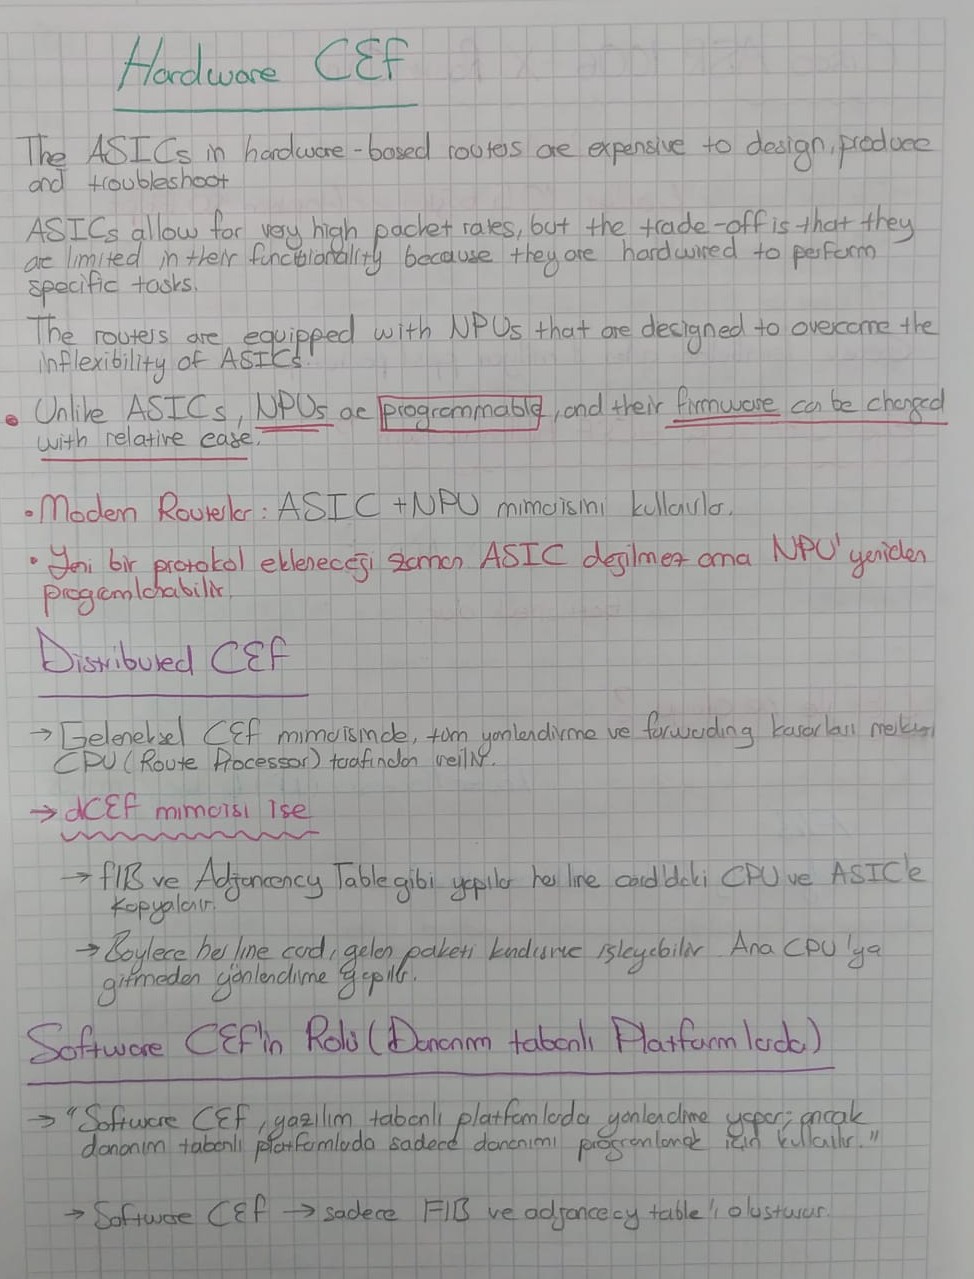 Hardware CEF
The ASICs in hardware-based routers are expensive to design, produce
and troubleshoot
ASICs allow for very high packet rates, but the trade-off is that they
are limited in their functionality because they are hardwired to perform
specific tasks.
The routers are equipped with NPUs that are designed to overcome the
inflexibility of ASICs.
• Unlike ASICs, NPUs are programmable, and their firmware can be changed
with relative ease.
• Modern Routerlar: ASIC + NPU mimarisini kullanılır.
• Yeni bir protokol ekleneceği zaman ASIC değilmez ama NPU' yeniden
programlanabilir.
Distributed CEF
→ Geleneksel CEF mimarisinde, tüm yönlendirme ve forwarding kararları merkezi
CPU (Route Processor) tarafından verilir.
→ dCEF mimarisi ise
→ FIB ve Adjancency Table gibi yapılar her line card'daki CPU ve ASIC'e
kopyalanır.
→ Böylece her line card, gelen paketi kendisine işleyebilir. Ana CPU'ya
gitmeden yönlendirme yapılır.
Software CEF'in Rolü (Donanım tabanlı Platformlarda)
→ "Software CEF, yazılım tabanlı platformlarda yönlendirme yapar; ancak
donanım tabanlı platformlarda sadece donanımı programlamak için kullanılır."
→ Software CEF → sadece FIB ve adjancecy table'ı oluşturur.